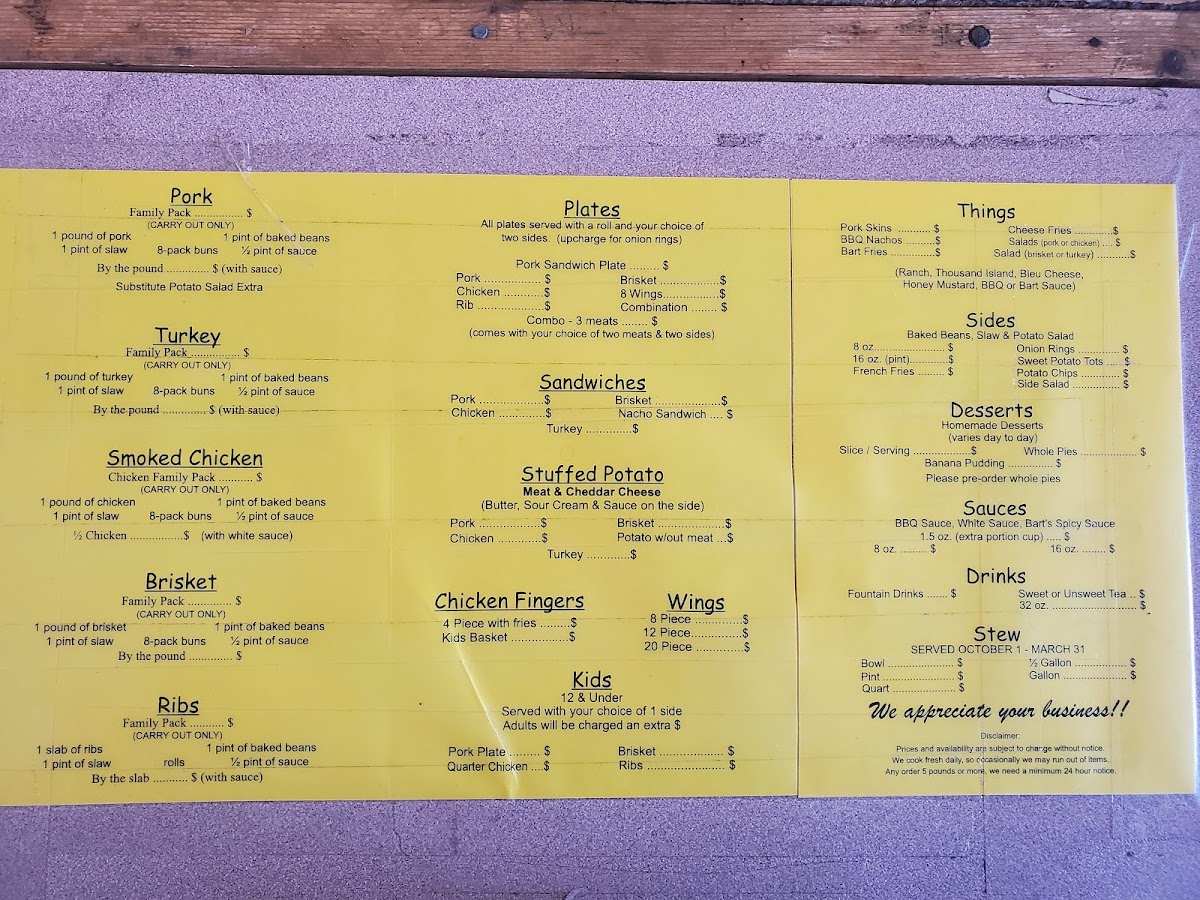 Pork
Family Pack ................ $
(CARRY OUT ONLY)
1 pound of pork 1 pint of baked beans
1 pint of slaw 8-pack buns ½ pint of sauce
By the pound .............. $ (with sauce)
Substitute Potato Salad Extra
Turkey
Family Pack ................. $
(CARRY OUT ONLY)
1 pound of turkey 1 pint of baked beans
1 pint of slaw 8-pack buns ½ pint of sauce
By the pound .............. $ (with sauce)
Smoked Chicken
Chicken Family Pack ........... $
(CARRY OUT ONLY)
1 pound of chicken 1 pint of baked beans
1 pint of slaw 8-pack buns ½ pint of sauce
½ Chicken .................$ (with white sauce)
Brisket
Family Pack .............. $
(CARRY OUT ONLY)
1 pound of brisket 1 pint of baked beans
1 pint of slaw 8-pack buns ½ pint of sauce
By the pound .............. $
Ribs
Family Pack ........... $
(CARRY OUT ONLY)
1 slab of ribs 1 pint of baked beans
1 pint of slaw rolls ½ pint of sauce
By the slab ........... $ (with sauce)
Plates
All plates served with a roll and your choice of
two sides. (upcharge for onion rings)
Pork Sandwich Plate ......... $
Pork ........................... $ Brisket ...................$
Chicken .............$ 8 Wings...................$
Rib ......................$ Combination ........ $
Combo - 3 meats ........ $
(comes with your choice of two meats & two sides)
Sandwiches
Pork ......................$ Brisket .......................$
Chicken ...............$ Nacho Sandwich .... $
Turkey ...............$
Stuffed Potato
Meat & Cheddar Cheese
(Butter, Sour Cream & Sauce on the side)
Pork .....................$ Brisket .....................$
Chicken ................$ Potato w/out meat ...$
Turkey .............$
Chicken Fingers
4 Piece with fries .........$
Kids Basket .................$
Wings
8 Piece ..............$
12 Piece................$
20 Piece ..............$
Kids
12 & Under
Served with your choice of 1 side
Adults will be charged an extra $
Pork Plate ......... $ Brisket .......................$
Quarter Chicken ....$ Ribs ........................ $
Things
Pork Skins ........... $ Cheese Fries .............$
BBQ Nachos .........$ Salads (pork or chicken) .... $
Bart Fries ..............$ Salad (brisket or turkey) ...........$
(Ranch, Thousand Island, Bleu Cheese,
Honey Mustard, BBQ or Bart Sauce)
Sides
Baked Beans, Slaw & Potato Salad
8 oz........................ $ Onion Rings .............. $
16 oz. (pint).............$ Sweet Potato Tots .... $
French Fries ........ $ Potato Chips ............. $
Side Salad ................ $
Desserts
Homemade Desserts
(varies day to day)
Slice / Serving ...................$ Whole Pies ................... $
Banana Pudding .............. $
Please pre-order whole pies
Sauces
BBQ Sauce, White Sauce, Bart's Spicy Sauce
1.5 oz. (extra portion cup) ..... $
8 oz. ......... $ 16 oz. ........ $
Drinks
Fountain Drinks ....... $ Sweet or Unsweet Tea .. $
32 oz. ............................ $
Stew
SERVED OCTOBER 1 - MARCH 31
Bowl ....................... $ ½ Gallon ................. $
Pint ......................... $ Gallon ..................... $
Quart ..................... $
We appreciate your business!!
Disclaimer:
Prices and availability are subject to change without notice.
We cook fresh daily, so occasionally we may run out of items.
Any order 5 pounds or more, we need a minimum 24 hour notice.